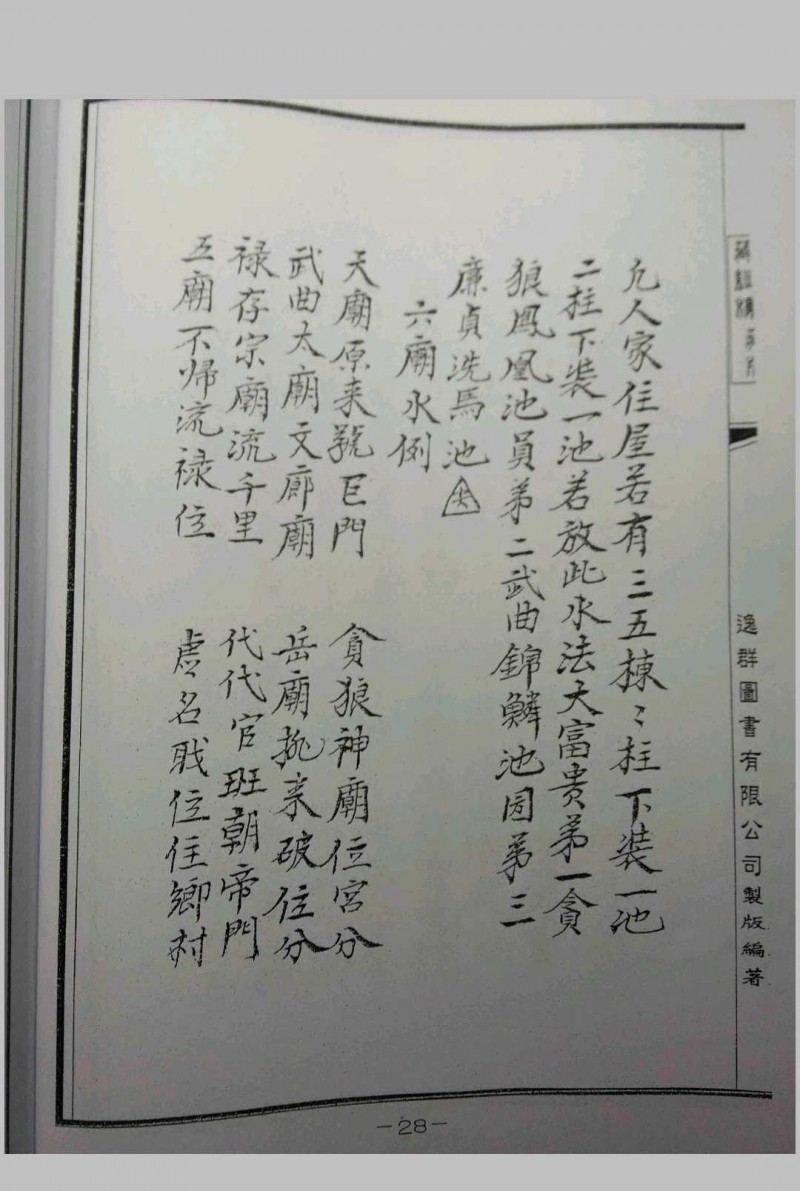 凣人家住屋若有三五棟〻柱下裝一池
二柱下裝一池若放此水法大富贵苐一貪
狼鳳凰池員苐二武曲錦鱗池园苐三
廉貞洗馬池尖
六廟水例
天廟原来號巨門 貪狼神廟位宮分
武曲太廟文廊廟 岳廟抛来破位分
禄存宗廟流千里 代代官班朝帝門
五廟不帰流禄位 虚名職位住鄉村
逸群圖書有限公司製版編著
-28-